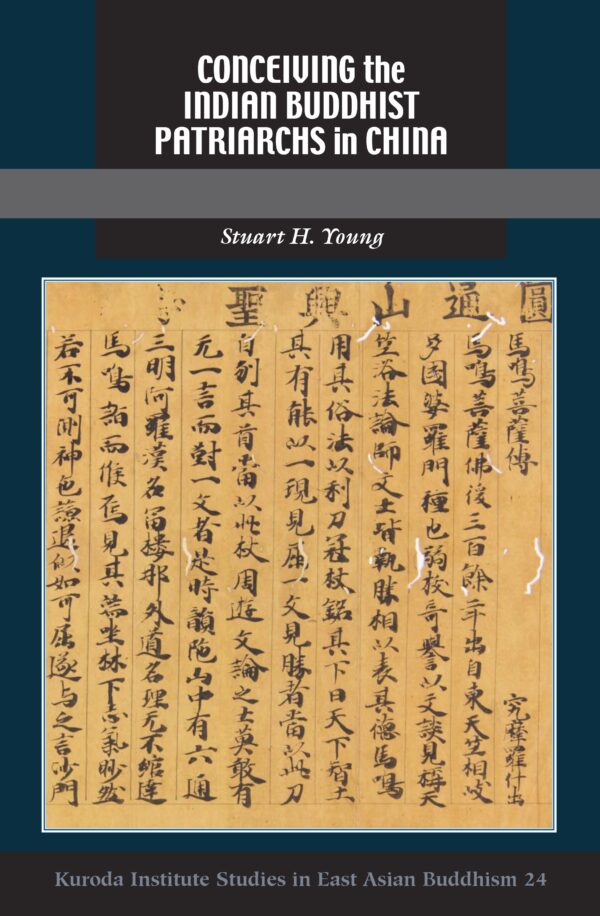 CONCEIVING the
INDIAN BUDDHIST
PATRIARCHS in CHINA
Stuart H. Young
圓通山興聖
馬鳴菩薩傳 羅什出
馬鳴菩薩佛後三百餘年出自東天竺相岐
多國婆羅門種也弱狡奇譽以文談見稱天
竺俗法論師文士皆執勝相以表其德馬鳴
用其俗法以利刀冠杖銘其下曰天下智士
其有能以一理見屈一文見勝者當以此刀
自刎其首當以此杖周遊文論之士莫敢有
亢一言而對一文者是時韻陁山中有六通
三明阿羅漢名富樓那外道名理无不綰達
馬鳴詣而候焉見其端坐林下志氣眇然
若不可測神色謙退似如可屈遂与之言沙門
Kuroda Institute Studies in East Asian Buddhism 24